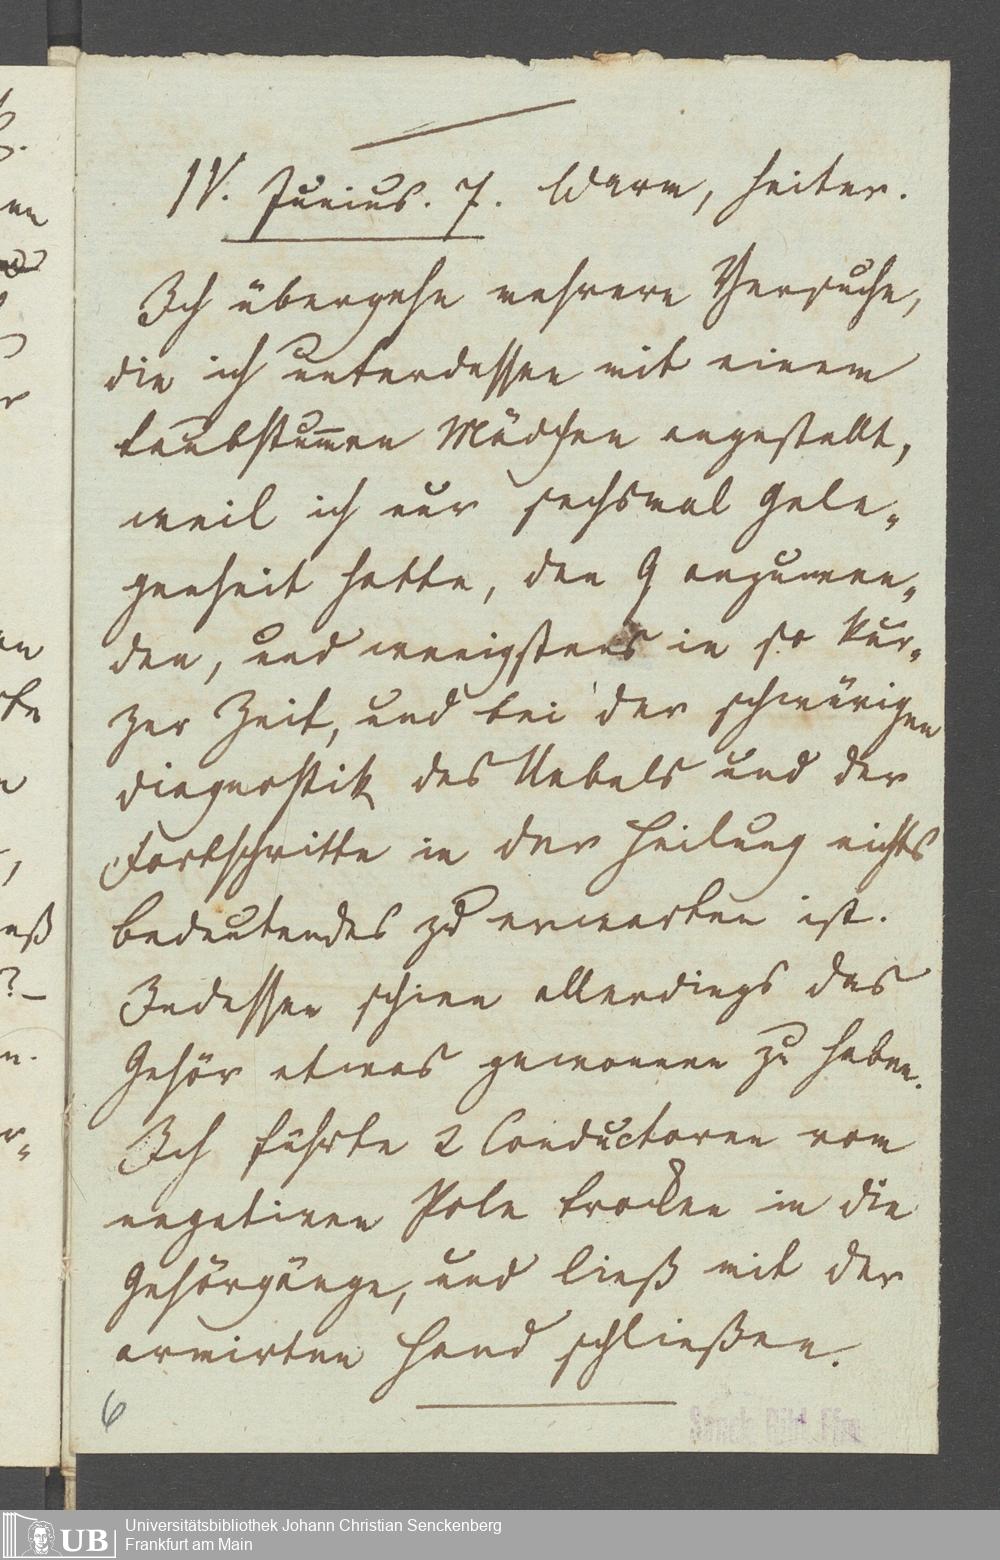 IV. Junius. 7. Warm, heiter.
Ich übergehe mehrere Versuche,
die ich unterdessen mit einem
taubstum̅en Mädchen angestellt,
weil ich nur sechsmal Gele„
genheit hatte, den G anzuwen„
den, und wenigstens in so kur„
zer Zeit, und bei der schwürigen
diagnostik des Uebels und der
Fortschritte in der Heilung nichts
bedeutendes zu erwarten ist.
Indessen schien allerdings das
Gehör etwas gewonnen zu haben.
Ich führte 2 Conductoren vom
negativen Pole trocken in die
Gehörgänge, und ließ mit der
armirten Hand schließen.
6
Senck. Bibl. Ffm
UB
Universitätsbibliothek Johann Christian Senckenberg
Frankfurt am Main